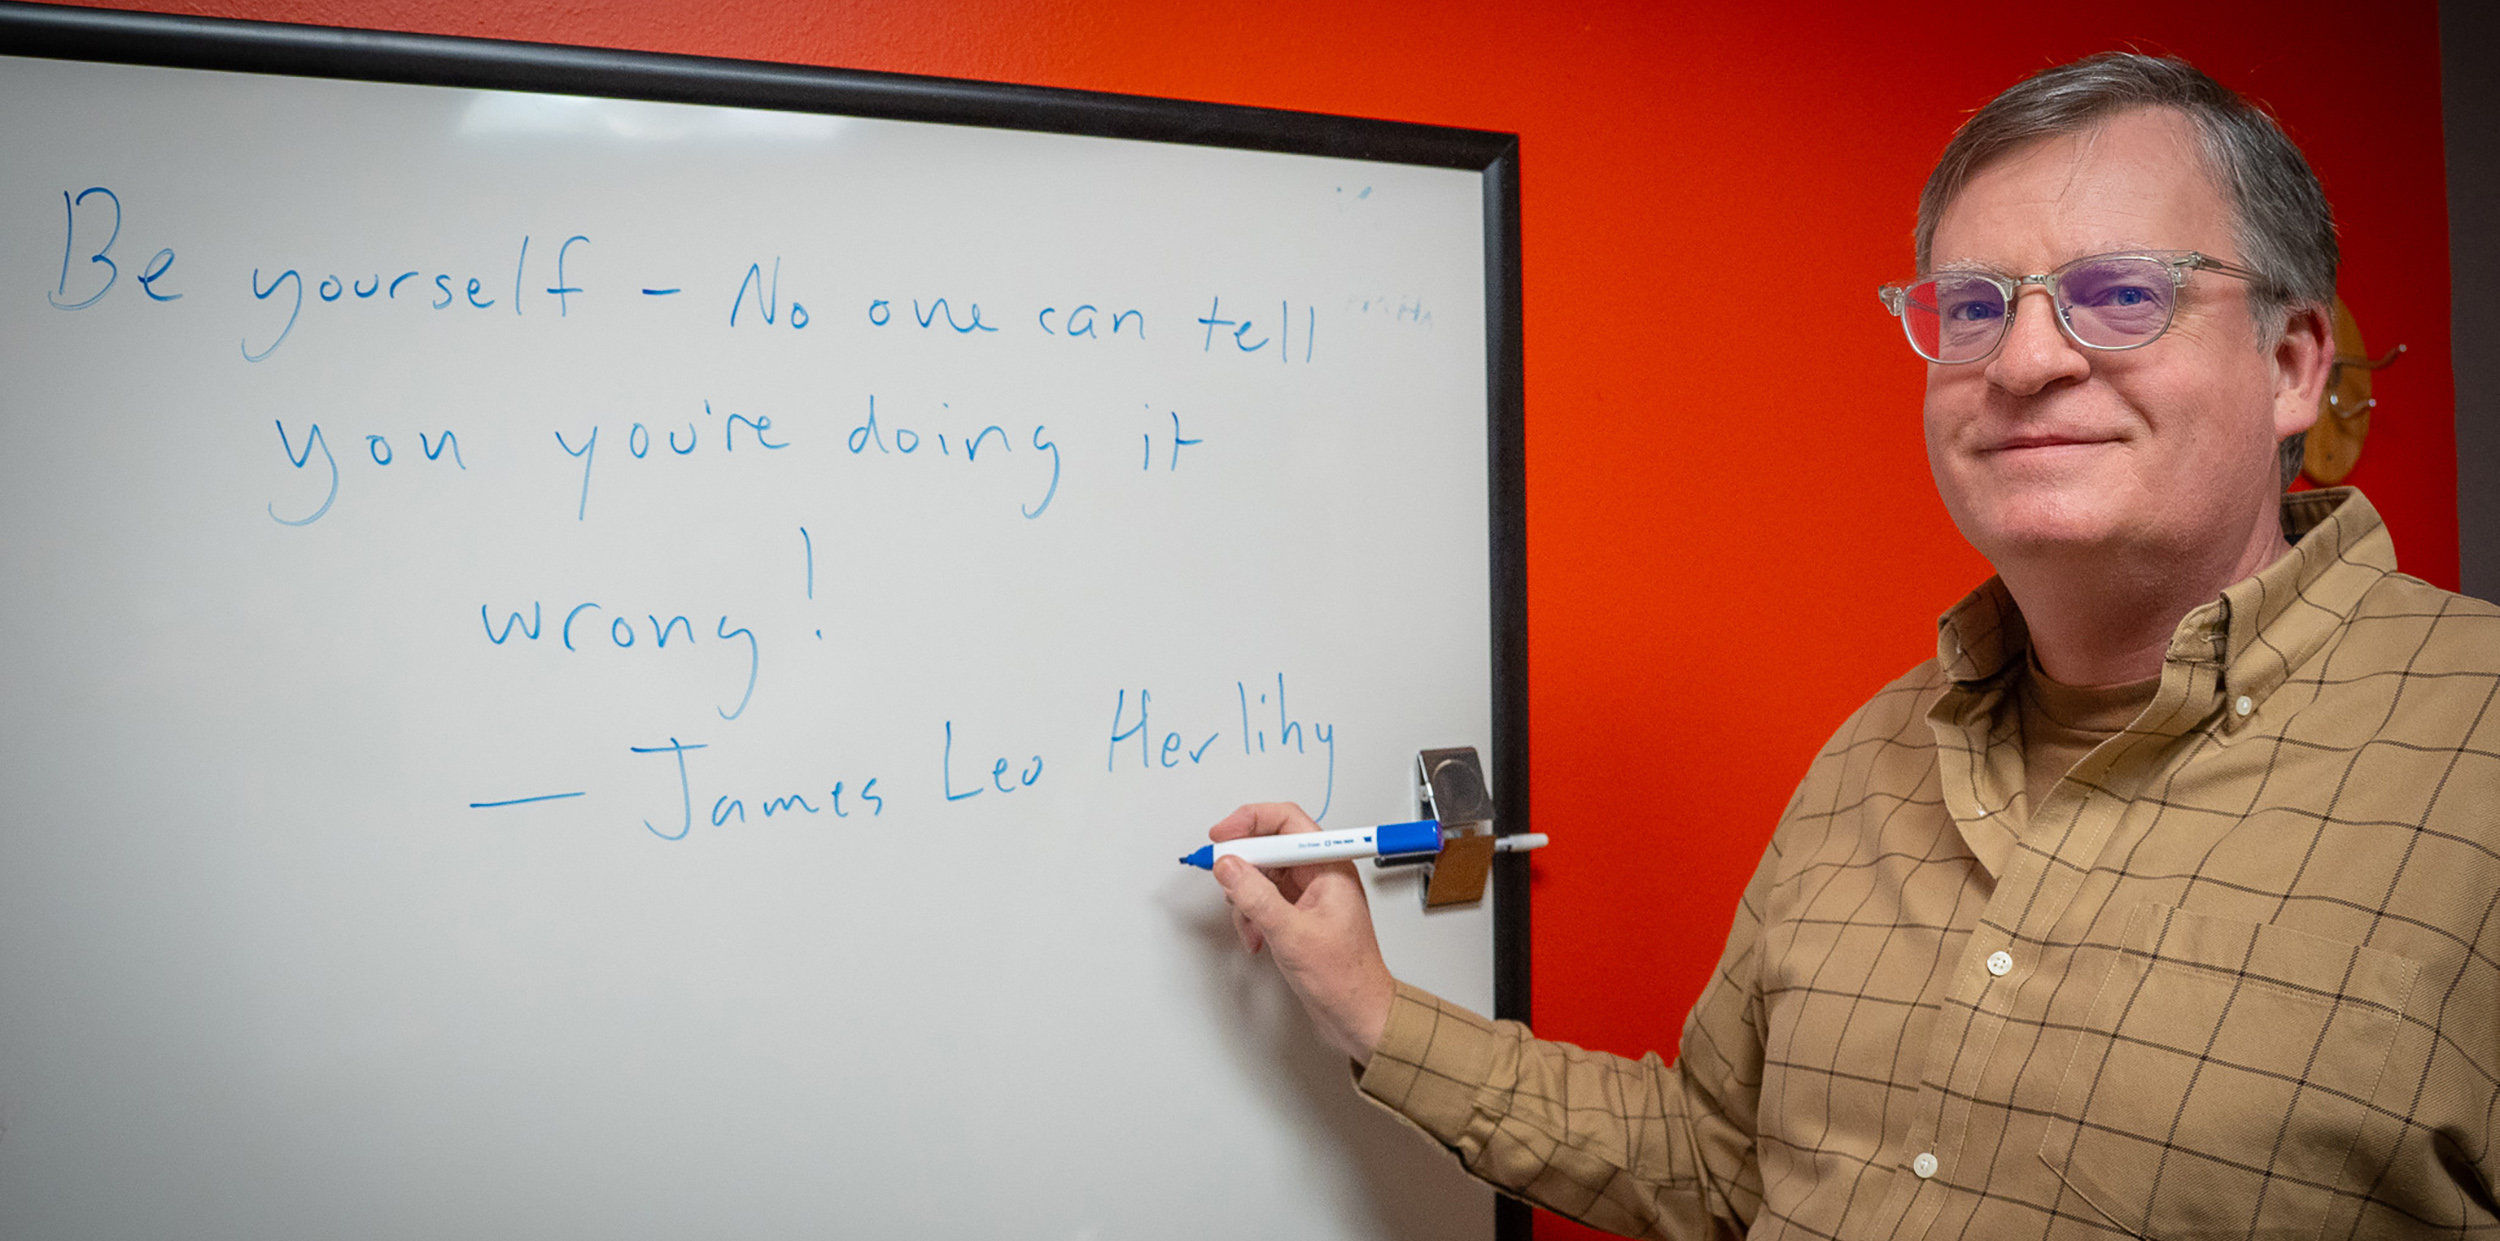 Be yourself - No one can tell
you you're doing it
wrong!
— James Leo Herlihy